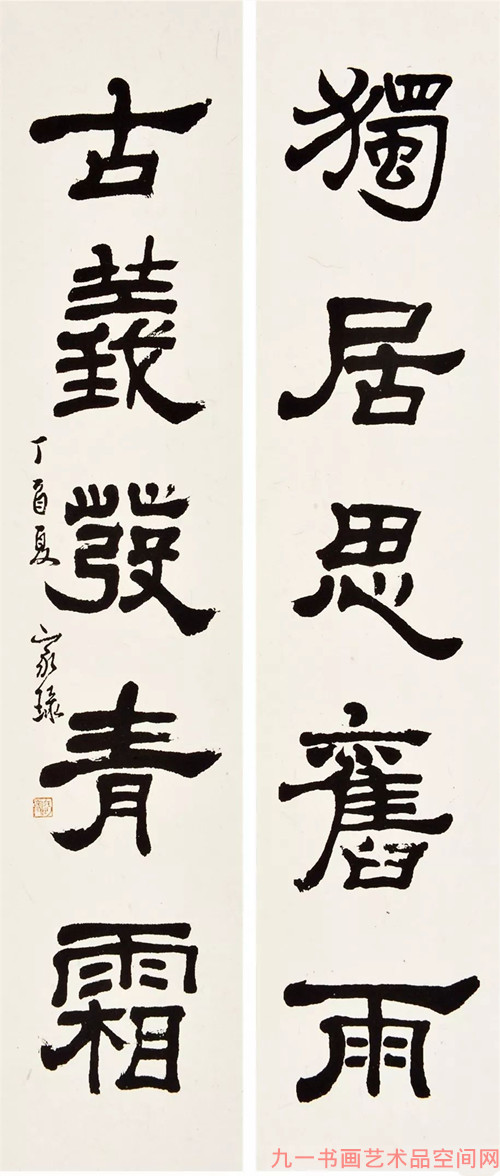 獨居思舊雨
古義發青霜
丁酉夏 家琭
九一书画艺术品空间网